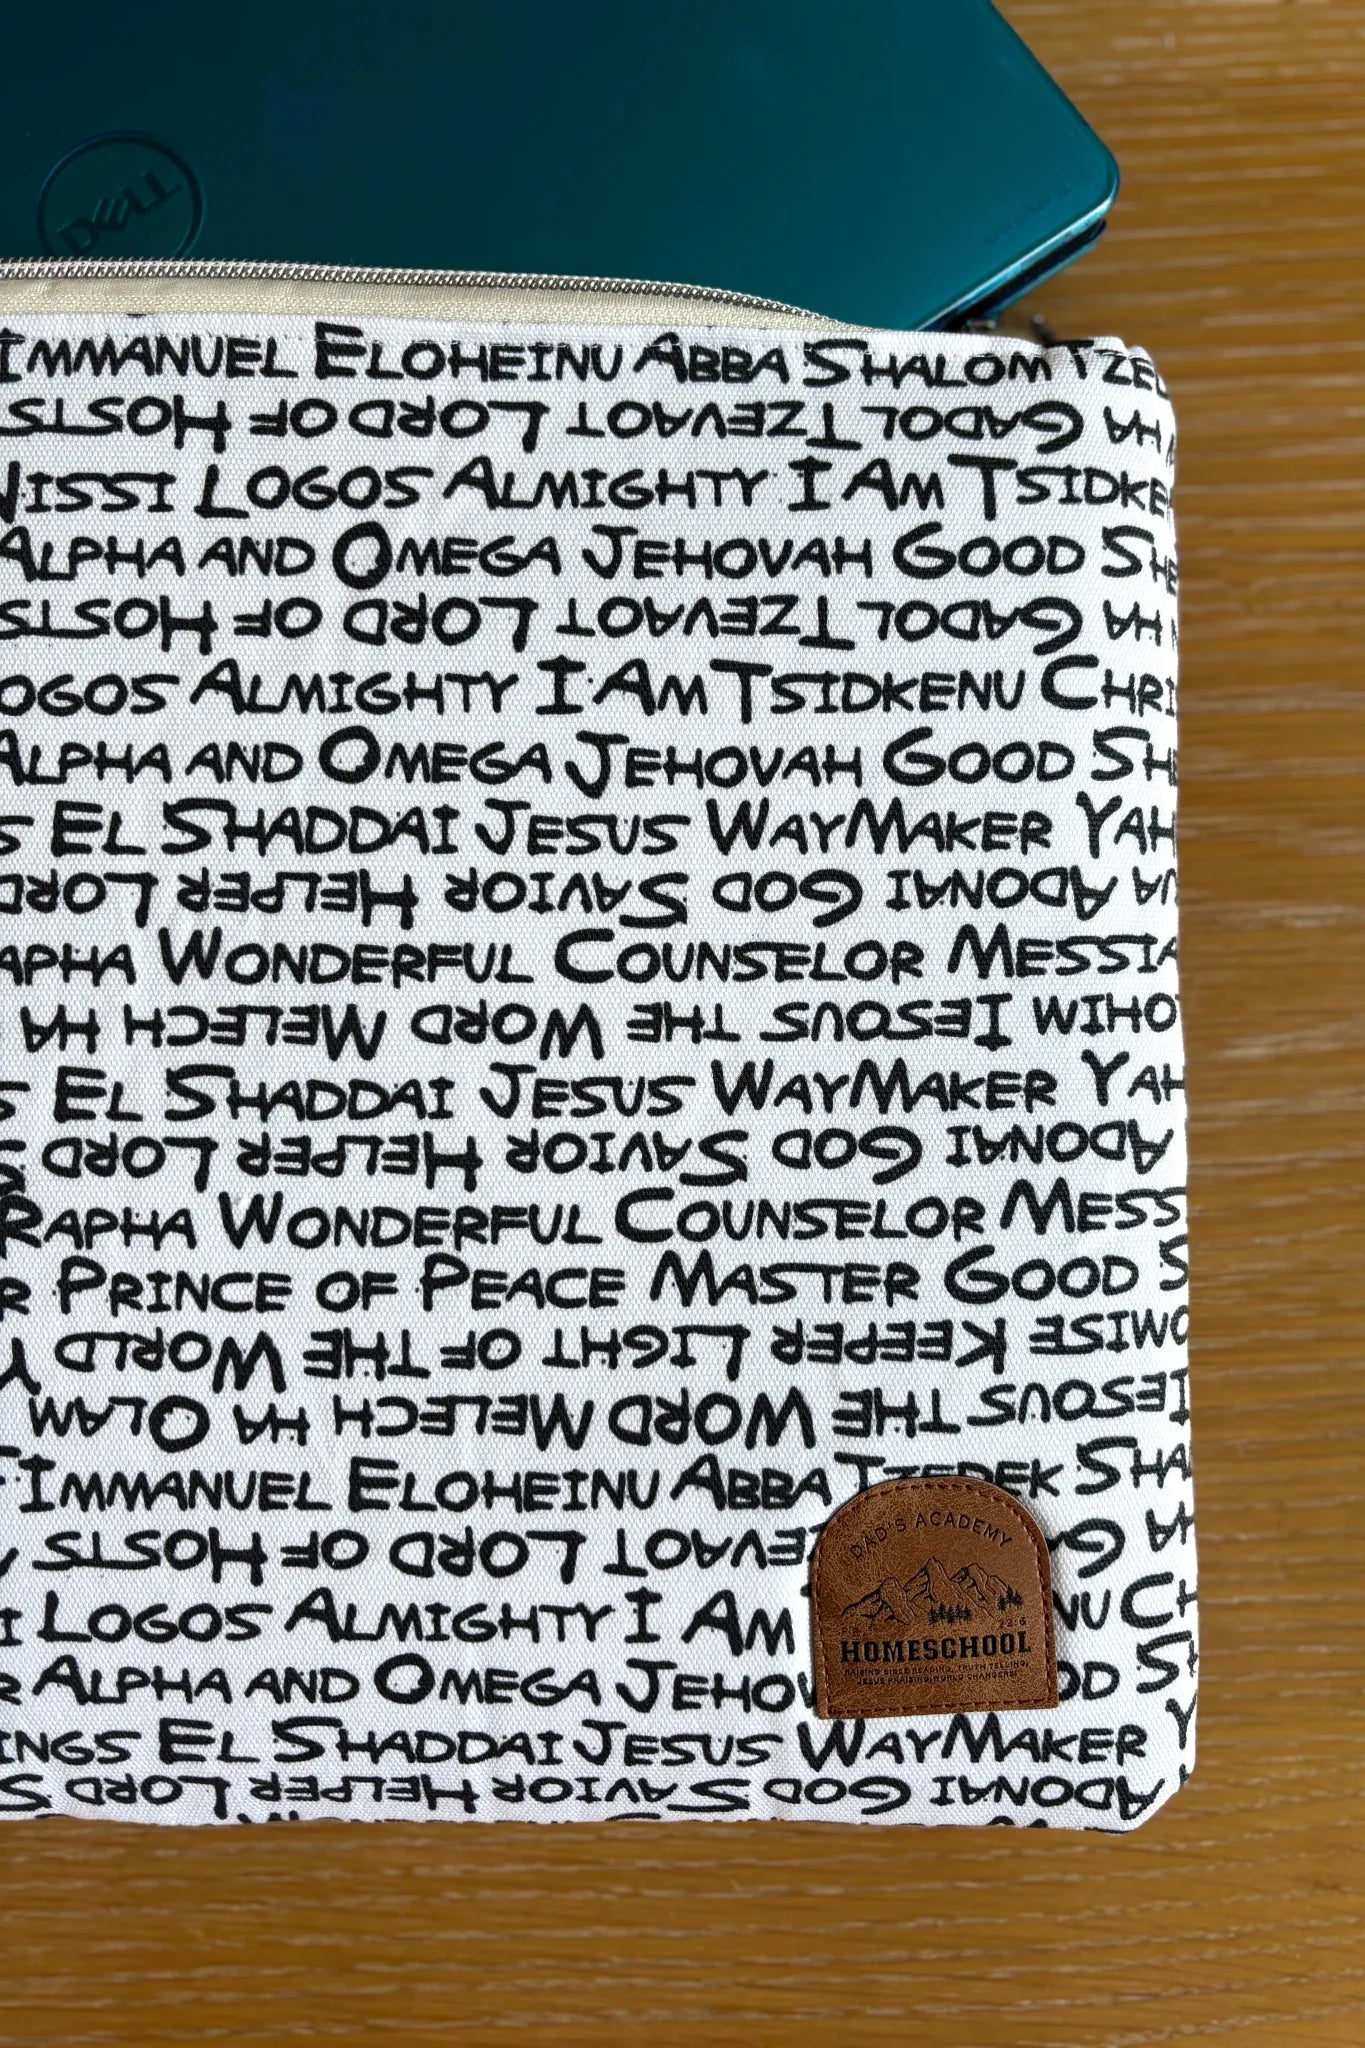 DELL
IMMANUEL ELOHEINU ABBA SHALOM
GADOL TZEVAOT LORD OF HOSTS
NISSI LOGOS ALMIGHTY I AM
ALPHA AND OMEGA JEHOVAH GOOD
HA GADOL TZEVAOT LORD OF HOSTS
ALMIGHTY I AM TSIDKENU
ALPHA AND OMEGA JEHOVAH GOOD
EL SHADDAI JESUS WAYMAKER
ADONAI GOD SAVIOR HELPER LORD
WONDERFUL COUNSELOR
IESOUS THE WORD MELECH HA
EL SHADDAI JESUS WAYMAKER
ADONAI GOD SAVIOR HELPER LORD
RAPHA WONDERFUL COUNSELOR
PRINCE OF PEACE MASTER GOOD
KEEPER LIGHT OF THE WORLD
IESOUS THE WORD MELECH HA OLAM
IMMANUEL ELOHEINU ABBA TZEDEK
LORD OF HOSTS
LOGOS ALMIGHTY I AM
ALPHA AND OMEGA
EL SHADDAI JESUS WAYMAKER
ADONAI GOD SAVIOR HELPER LORD
DAD'S ACADEMY
HOMESCHOOL
RAISING BIBLE READING, TRUTH TELLING,
JESUS PRAISING WORLD CHANGERS!